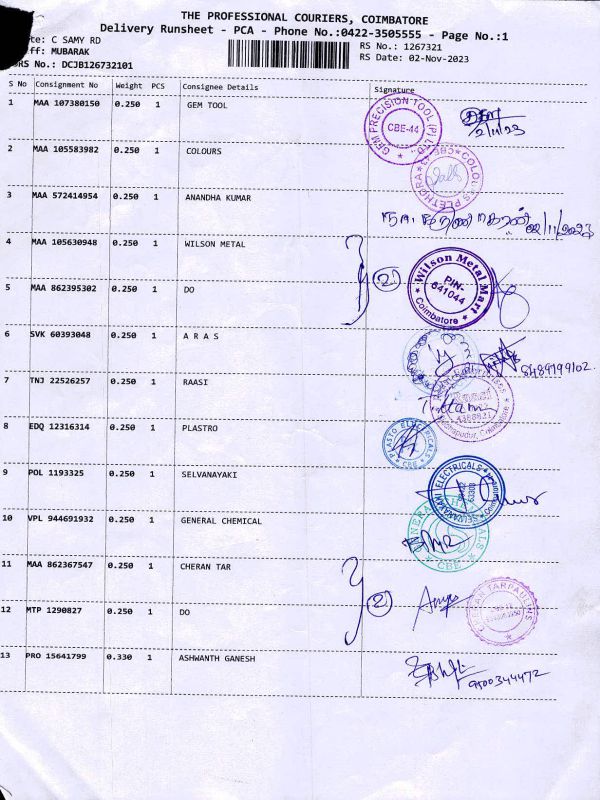 THE PROFESSIONAL COURIERS, COIMBATORE
Delivery Runsheet - PCA - Phone No.:0422-3505555 - Page No.:1
te: C SAMY RD
ff: MUBARAK
RS No.: DCJB126732101
RS No.: 1267321
RS Date: 02-Nov-2023
S No Consignment No Weight PCS Consignee Details Signature
1 MAA 107380150 0.250 1 GEM TOOL
GEM PRECISION TOOL (P) LTD. CBE-44
2/11/23
2 MAA 105583982 0.250 1 COLOURS
COLOURS PLETHORA
3 MAA 572414954 0.250 1 ANANDHA KUMAR
02/11/2023
4 MAA 105630948 0.250 1 WILSON METAL
5 MAA 862395302 0.250 1 DO
2
Wilson Metal Mart PIN-641044 Coimbatore
6 SVK 60393048 0.250 1 A R A S
8489199102.
7 TNJ 22526257 0.250 1 RAASI
8 EDQ 12316314 0.250 1 PLASTRO
PLASTO ELECTRICALS CBE
9 POL 1193325 0.250 1 SELVANAYAKI
SELVANAYAKI ELECTRICALS
10 VPL 944691932 0.250 1 GENERAL CHEMICAL
GENERAL CHEMICALS CBE
11 MAA 862367547 0.250 1 CHERAN TAR
12 MTP 1290827 0.250 1 DO
2
CHERAN TARPAULINS
13 PRO 15641799 0.330 1 ASHWANTH GANESH
9500344472